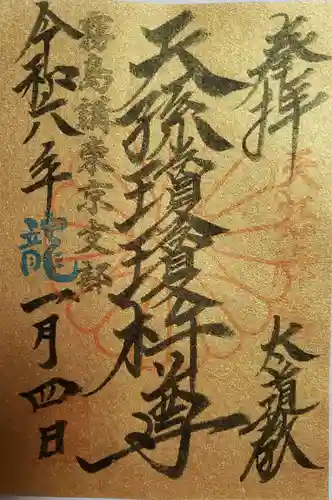 奉拝
大道教
天孫瓊瓊杵尊
霧島講東京支部
令和六年
龍
一月四日